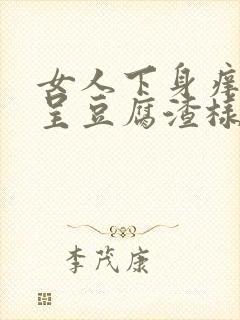 女人下身痒
呈豆腐渣样
李茂康